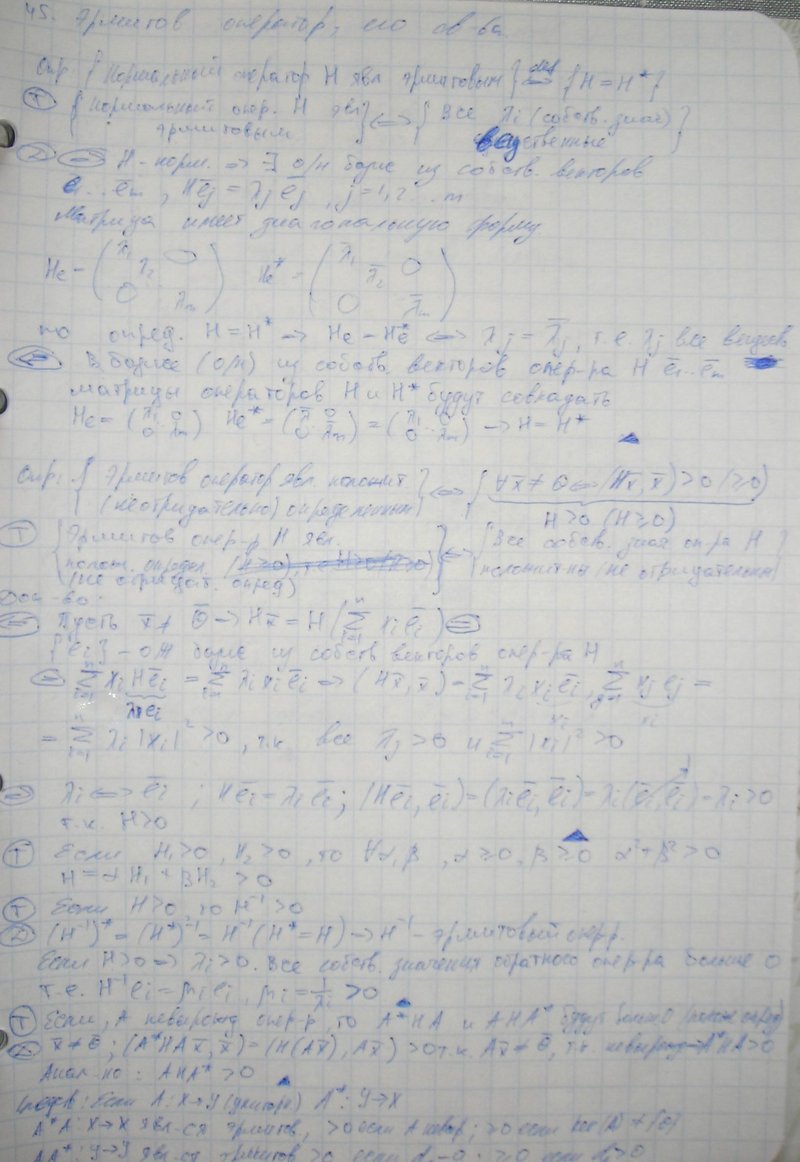 45. Эрмитов оператор, его св-ва.
Опр. { Нормальный оператор H явл эрмитовым } <=> def { H = H* }
(Т) { нормальный опер. H явл эрмитовым } <=> { Все λi (собств. знач) вещественные }
(Д) (=>) H - норм. => ∃ о/н базис из собств. векторов
e1...em, Hej = λj ej, j = 1,2...m
Матрица имеет диагональную форму
He = (λ1 λ2 0 0 λm) He* = (λ̄1 λ̄2 0 0 λ̄m)
по опред. H = H* => He = He* <=> λj = λ̄j, т.е. λj все веществ
(<=) В базисе (о/н) из собств. векторов опер-ра H e1...em
матрицы операторов H и H* будут совпадать
He = (λ1 0 0 λm) He* = (λ̄1 0 0 λ̄m) = (λ1 0 0 λm) -> H = H*
Опр: { Эрмитов оператор явл. положит (неотрицательно) определенным } <=> { ∀x̄ ≠ θ (Hx̄, x̄) > 0 (≥0) }
H > 0 (H ≥ 0)
(Т) { Эрмитов опер-р H явл. { Все собств. знач оп-ра H
полож. определ. } <=> положит-ны (не отрицательны) }
(не отрицат. опред)
Док-во:
(<=) Пусть x̄ ≠ θ̄ -> Hx̄ = H(∑ xi ēi) (=)
{ēi} - ОН базис из собств векторов опер-ра H
(=) ∑ xi Hēi = ∑ λi xi ēi => (Hx̄, x̄) = ∑ λi xi ēi, ∑ xj ej =
λi ei
= ∑ λi |xi|² > 0, т.к. все λj > 0 и ∑ |xi|² > 0
(=>) λi <-> ēi ; Hēi = λi ēi ; (Hēi, ēi) = (λi ēi, ēi) = λi (ēi, ēi) = λi > 0
т.к. H > 0
(Т) Если H1 > 0, H2 > 0, то ∀α, β, α ≥ 0, β ≥ 0 α² + β² > 0
H = αH1 + βH2 > 0
(Т) Если H > 0, то H⁻¹ > 0
(Д) (H⁻¹)* = (H*)⁻¹ = H⁻¹ (H* = H) -> H⁻¹ - эрмитовый опер-р.
Если H > 0 => λi > 0. Все собств. значения обратного опер-ра больше 0
т.е. H⁻¹ei = μi ei, μi = 1/λi > 0
(Т) Если A невырожд опер-р, то A*HA и AHA* будут больше 0 (полож опред)
(Д) x̄ ≠ θ̄ ; (A*HAx̄, x̄) = (H(Ax̄), Ax̄) > 0 т.к. Ax̄ ≠ θ̄, т.к. невырожд -> A*HA > 0
Анал-но: AHA* > 0
Если A: X -> Y A*: Y -> X
A*A: X -> X явл-ся эрмитов, > 0 если A невыр; ≥ 0 если
AA*: Y -> Y явл-ся эрмитов > 0 если